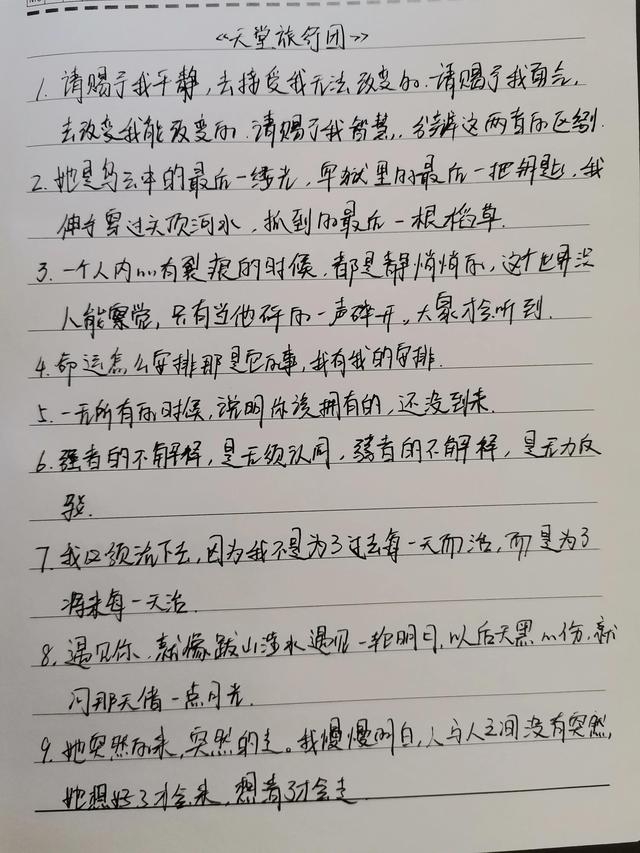 《天堂旅行团》
1. 请赐予我平静，去接受我无法改变的。请赐予我勇气，
去改变我能改变的。请赐予我智慧，分辨这两者的区别。
2. 她是乌云中的最后一缕光，牢狱里的最后一把钥匙，我
伸手穿过头顶河水，抓到的最后一根稻草。
3. 一个人内心有裂痕的时候，都是静悄悄的，这个世界没
人能察觉，只有当他砰的一声碎开，大家才会听到。
4. 命运怎么安排那是它的事，我有我的安排。
5. 一无所有的时候，说明你该拥有的，还没到来。
6. 强者的不解释，是无须认同，弱者的不解释，是无力反
驳。
7. 我必须流下去，因为我不是为了过去每一天而活，而是为了
将来每一天活
8. 遇见你，就像跋山涉水遇见一轮明月，以后天黑心伤，就
问那天借一点月光。
9. 她突然的来，突然的走。我慢慢明白，人与人之间没有突然，
她想好了才会来，想清了才会走